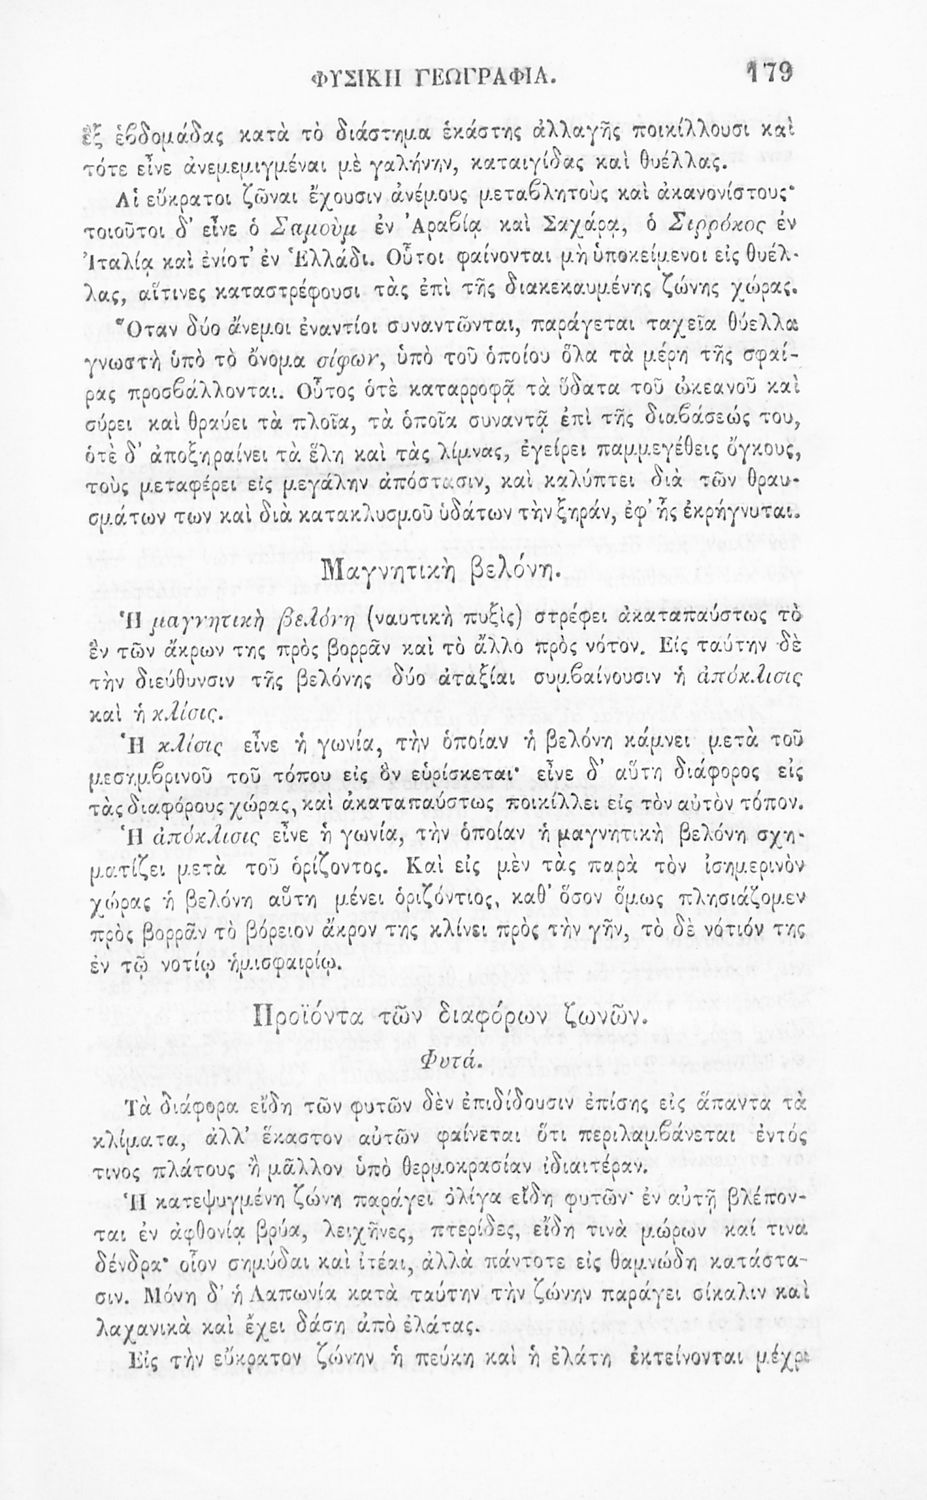 ΦΥΣΙΚΗ ΓΕΩΓΡΑΦΙΑ. 179
ἓξ ἑβδομάδας κατὰ τὸ διάστημα ἑκάστης ἀλλαγῆς ποικίλλουσι καὶ
τότε εἶνε ἀνεμεμιγμέναι μὲ γαλήνην, καταιγίδας καὶ θυέλλας.
Αἱ εὔκρατοι ζῶναι ἔχουσιν ἀνέμους μεταβλητοὺς καὶ ἀκανονίστους·
τοιοῦτοι δ' εἶνε ὁ Σαμοὺμ ἐν Ἀραβίᾳ καὶ Σαχάρᾳ, ὁ Σιρρόκος ἐν
Ἰταλίᾳ καὶ ἐνίοτ' ἐν Ἑλλάδι. Οὗτοι φαίνονται μὴ ὑποκείμενοι εἰς θυέλ-
λας, αἵτινες καταστρέφουσι τὰς ἐπὶ τῆς διακεκαυμένης ζώνης χώρας.
Ὅταν δύο ἄνεμοι ἐναντίοι συναντῶνται, παράγεται ταχεῖα θύελλα
γνωστὴ ὑπὸ τὸ ὄνομα σίφων, ὑπὸ τοῦ ὁποίου ὅλα τὰ μέρη τῆς σφαί-
ρας προσβάλλονται. Οὗτος ὁτὲ καταρροφᾷ τὰ ὕδατα τοῦ ὠκεανοῦ καὶ
σύρει καὶ θραύει τὰ πλοῖα, τὰ ὁποῖα συναντᾷ ἐπὶ τῆς διαβάσεώς του,
ὁτὲ δ' ἀποξηραίνει τὰ ἕλη καὶ τὰς λίμνας, ἐγείρει παμμεγέθεις ὄγκους,
τοὺς μεταφέρει εἰς μεγάλην ἀπόστασιν, καὶ καλύπτει διὰ τῶν θραυ-
σμάτων των καὶ διὰ κατακλυσμοῦ ὑδάτων τὴν ξηράν, ἐφ' ἧς ἐκρήγνυται.
Μαγνητικὴ βελόνη.
Ἡ μαγνητικὴ βελόνη (ναυτικὴ πυξὶς) στρέφει ἀκαταπαύστως τὸ
ἓν τῶν ἄκρων της πρὸς βορρᾶν καὶ τὸ ἄλλο πρὸς νότον. Εἰς ταύτην δὲ
τὴν διεύθυνσιν τῆς βελόνης δύο ἀταξίαι συμβαίνουσιν ἡ ἀπόκλισις
καὶ ἡ κλίσις.
Ἡ κλίσις εἶνε ἡ γωνία, τὴν ὁποίαν ἡ βελόνη κάμνει μετὰ τοῦ
μεσημβρινοῦ τοῦ τόπου εἰς ὃν εὑρίσκεται· εἶνε δ' αὕτη διάφορος εἰς
τὰς διαφόρους χώρας, καὶ ἀκαταπαύστως ποικίλλει εἰς τὸν αὐτὸν τόπον.
Ἡ ἀπόκλισις εἶνε ἡ γωνία, τὴν ὁποίαν ἡ μαγνητικὴ βελόνη σχη-
ματίζει μετὰ τοῦ ὁρίζοντος. Καὶ εἰς μὲν τὰς παρὰ τὸν ἰσημερινὸν
χώρας ἡ βελόνη αὕτη μένει ὁριζόντιος, καθ' ὅσον ὅμως πλησιάζομεν
πρὸς βορρᾶν τὸ βόρειον ἄκρον της κλίνει πρὸς τὴν γῆν, τὸ δὲ νότιόν της
ἐν τῷ νοτίῳ ἡμισφαιρίῳ.
Προϊόντα τῶν διαφόρων ζωνῶν.
Φυτά.
Τὰ διάφορα εἴδη τῶν φυτῶν δὲν ἐπιδίδουσιν ἐπίσης εἰς ἅπαντα τὰ
κλίματα, ἀλλ' ἕκαστον αὐτῶν φαίνεται ὅτι περιλαμβάνεται ἐντός
τινος πλάτους ἢ μᾶλλον ὑπὸ θερμοκρασίαν ἰδιαιτέραν.
Ἡ κατεψυγμένη ζώνη παράγει ὀλίγα εἴδη φυτῶν· ἐν αὐτῇ βλέπον-
ται ἐν ἀφθονίᾳ βρύα, λειχῆνες, πτερίδες, εἴδη τινὰ μώρων καί τινα
δένδρα· οἷον σημύδαι καὶ ἰτέαι, ἀλλὰ πάντοτε εἰς θαμνώδη κατάστα-
σιν. Μόνη δ' ἡ Λαπωνία κατὰ ταύτην τὴν ζώνην παράγει σίκαλιν καὶ
λαχανικὰ καὶ ἔχει δάση ἀπὸ ἐλάτας.
Εἰς τὴν εὔκρατον ζώνην ἡ πεύκη καὶ ἡ ἐλάτη ἐκτείνονται μέχρι